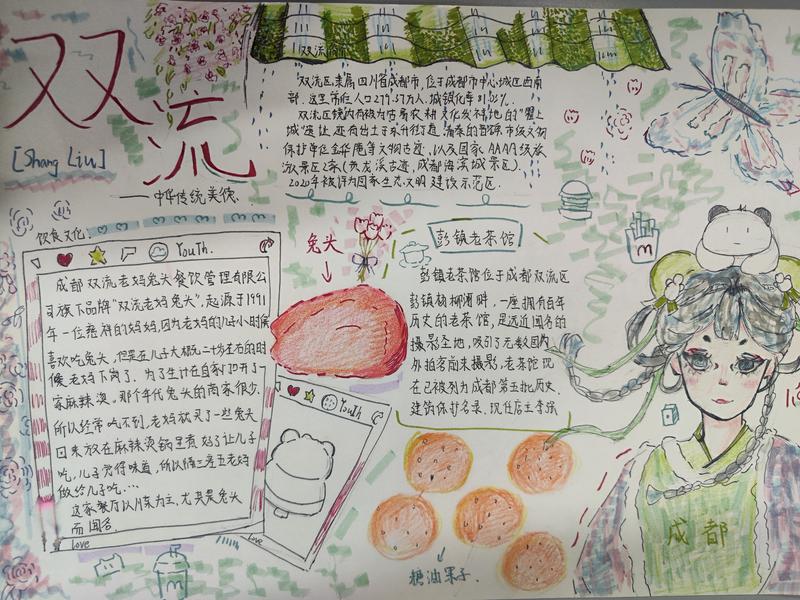 双流
[Shang Liu]
——中华传统美德
双流简介
双流区隶属四川省成都市,位于成都市中心城区西南
部.这里常住人口279.37万人,城镇化率81.
双流区境内有被为古蜀农耕文化发祥地的"瞿上
城"遗址,还有出土于永升街道
保护单位 等文物古迹,以及国家AAAA级旅
游景区2家(黄龙溪古迹,成都海滨城景区).
2020年被评为国家生态文明建设示范区.
饮食文化.
YouTh.
成都双流老妈兔头餐饮管理有限公
司旗下品牌"双流老妈兔头",起源于1991
年一位慈祥的妈妈,因为老妈的儿子小时候
喜欢吃兔头,但是在儿子大概二十岁左右的时
候老妈下岗了.为了生计在自家门口开了一
家麻辣烫.那个年代兔头的商家很少,
所以经常吃不到,老妈就买了一些兔头
回来放在麻辣烫锅里煮好了让儿子
吃,儿子觉得味道,所以隔三差五老妈
做给儿子吃...
这家餐厅以川菜为主,尤其是兔头
而闻名.
Love
兔头
YouTh
Love
彭镇老茶馆
彭镇老茶馆位于成都双流区
彭镇杨柳河畔,一座拥有百年
历史的老茶馆,是远近闻名的
摄影圣地,吸引了无数国内
外拍客前来摄影,老茶馆现
在已被列为成都第五批历史
建筑保护名录.现任店主李强
糖油果子.
m
m
成都